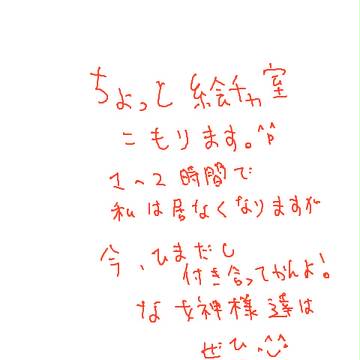 ちょっと絵チャ室
こもります。^p^
1~2時間で
私は居なくなりますが
今、ひまだし
付き合ってやんよ!
な女神様達は
ぜひ :)